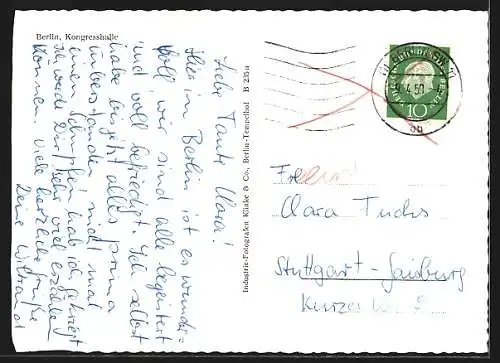 Berlin, Kongresshalle
Liebe Tante Clara!
Hier in Berlin ist es wunder-
voll wir sind alle begeistert
und voll befriedigt. Ich selbst
habe bis jetzt alles prima
überstanden nicht mal
einen Schnupfen hab ich gekriegt
Ich werde Dir sehr viel erzählen
können. Viele herzliche Grüße
Deine Wiltraud
Industrie-Fotografen Klinke & Co., Berlin-Tempelhof B 235 a
10
Clara Fuchs
Stuttgart-Gaisburg